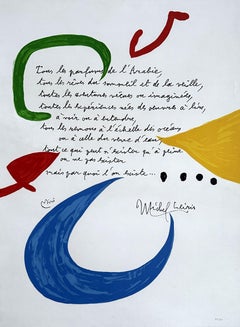 Tous les parfums de l'Arabie,
tous les rêves du sommeil et de la veille,
toutes les aventures vécues ou imaginées,
toutes les
à voir ou à entendre,
tous les remous à l'échelle des océans
ou à celle du verre d'eau,
tout ce qui peut n'exister qu'à peine
ou ne pas exister
mais par quoi l'on existe...
Miró
Michel Leiris